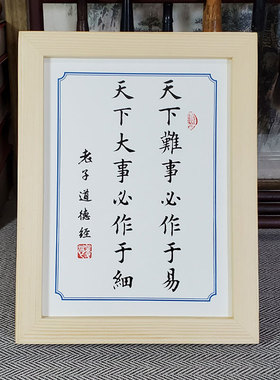 天下難事必作于易
天下大事必作于細
老子道德经